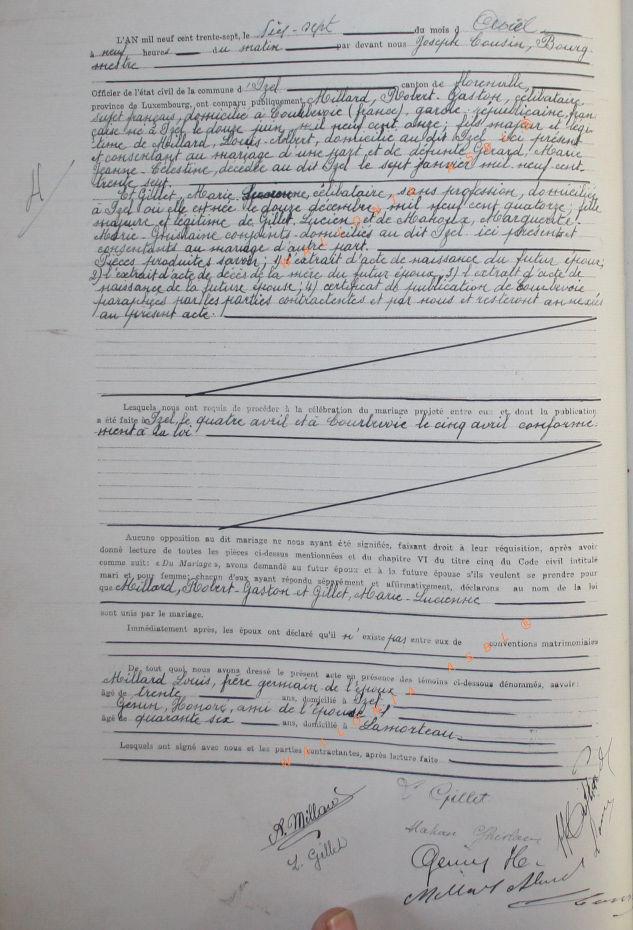 4
L'AN mil neuf cent trente-sept, le dix-sept du mois d'Avril
à neuf heures du matin par devant nous Joseph Cousin, Bourg-
mestre
Officier de l'état civil de la commune d'Izel canton de Florenville,
province de Luxembourg, ont comparu publiquement Millard, Robert-Gaston, célibataire
sujet français, domicilié à Courbevoie (France), garde républicaine, fran-
çaise né à Izel le douze juin mil neuf cent onze; fils majeur et légi-
time de Millard, Louis-Albert, domicilié au dit Izel ici présent
et consentant au mariage d'une part et de défunte Gérard, Marie
Jeanne-Célestine, décédée au dit Izel le sept janvier mil neuf cent
trente sept.
Et Gillet, Marie-Lucienne, célibataire, sans profession, domiciliée
à Izel où elle est née le douze décembre mil neuf cent quatorze; fille
majeure et légitime de Gillet, Lucien et de Mahoux, Marguerite
Marie-Ghislaine conjoints domiciliés au dit Izel ici présents et
consentants au mariage d'autre part.
Pièces produites savoir; 1) l'extrait d'acte de naissance du futur époux;
2) l'extrait d'acte de décès de la mère du futur époux, 3) l'extrait d'acte de
naissance de la future épouse; 4) certificat de publication de Courbevoie
paraphées par les parties contractentes et par nous et resteront annexées
au présent acte.
Lesquels nous ont requis de procéder à la célébration du mariage projeté entre eux et dont la publication
a été faite à Izel, le quatre avril et à Courbevoie le cinq avril conformé-
ment à la loi.
Aucune opposition au dit mariage ne nous ayant été signifiée, faisant droit à leur réquisition, après avoir
donné lecture de toutes les pièces ci-dessus mentionnées et du chapitre VI du titre cinq du Code civil intitulé
comme suit: « Du Mariage », avons demandé au futur époux et à la future épouse s'ils veulent se prendre pour
mari et pour femme; chacun d'eux ayant répondu séparément et affirmativement, déclarons au nom de la loi
que Millard, Robert-Gaston et Gillet, Marie-Lucienne
sont unis par le mariage.
Immédiatement après, les époux ont déclaré qu'il n'existe pas entre eux de conventions matrimoniales
De tout quoi, nous avons dressé le présent acte en présence des témoins ci-dessous dénommés, savoir:
Millard Louis, frère germain de l'époux
âgé de trente ans, domicilié à Izel
Genin, Honoré, ami de l'épouse
âgé de quarante six ans, domicilié à Lamorteau
Lesquels ont signé avec nous et les parties contractantes, après lecture faite
WALLONIA ASBL ®
WALLONIA ASBL ®
R. Millard
L. Gillet
Gillet
Genin H.
Millard Albert